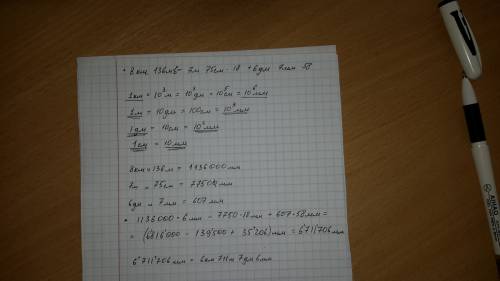 8 км 136м·6 - 7м 75см · 18 + 6 дм 7мм · 58
1км = 10³м = 10⁴дм = 10⁵см = 10⁶мм
1м = 10дм = 100см = 10³мм
1дм = 10см = 10²мм
1см = 10мм
8км 136м = 1136000мм
7м и 75см = 7750мм
6дм и 7мм = 607мм
1136000 · 6мм - 7750·18мм + 607·58мм =
= (6'816'000 - 139'500 + 35'206)мм = 6'711'706мм
6'711'706мм = 6км 711м 7дм 6мм